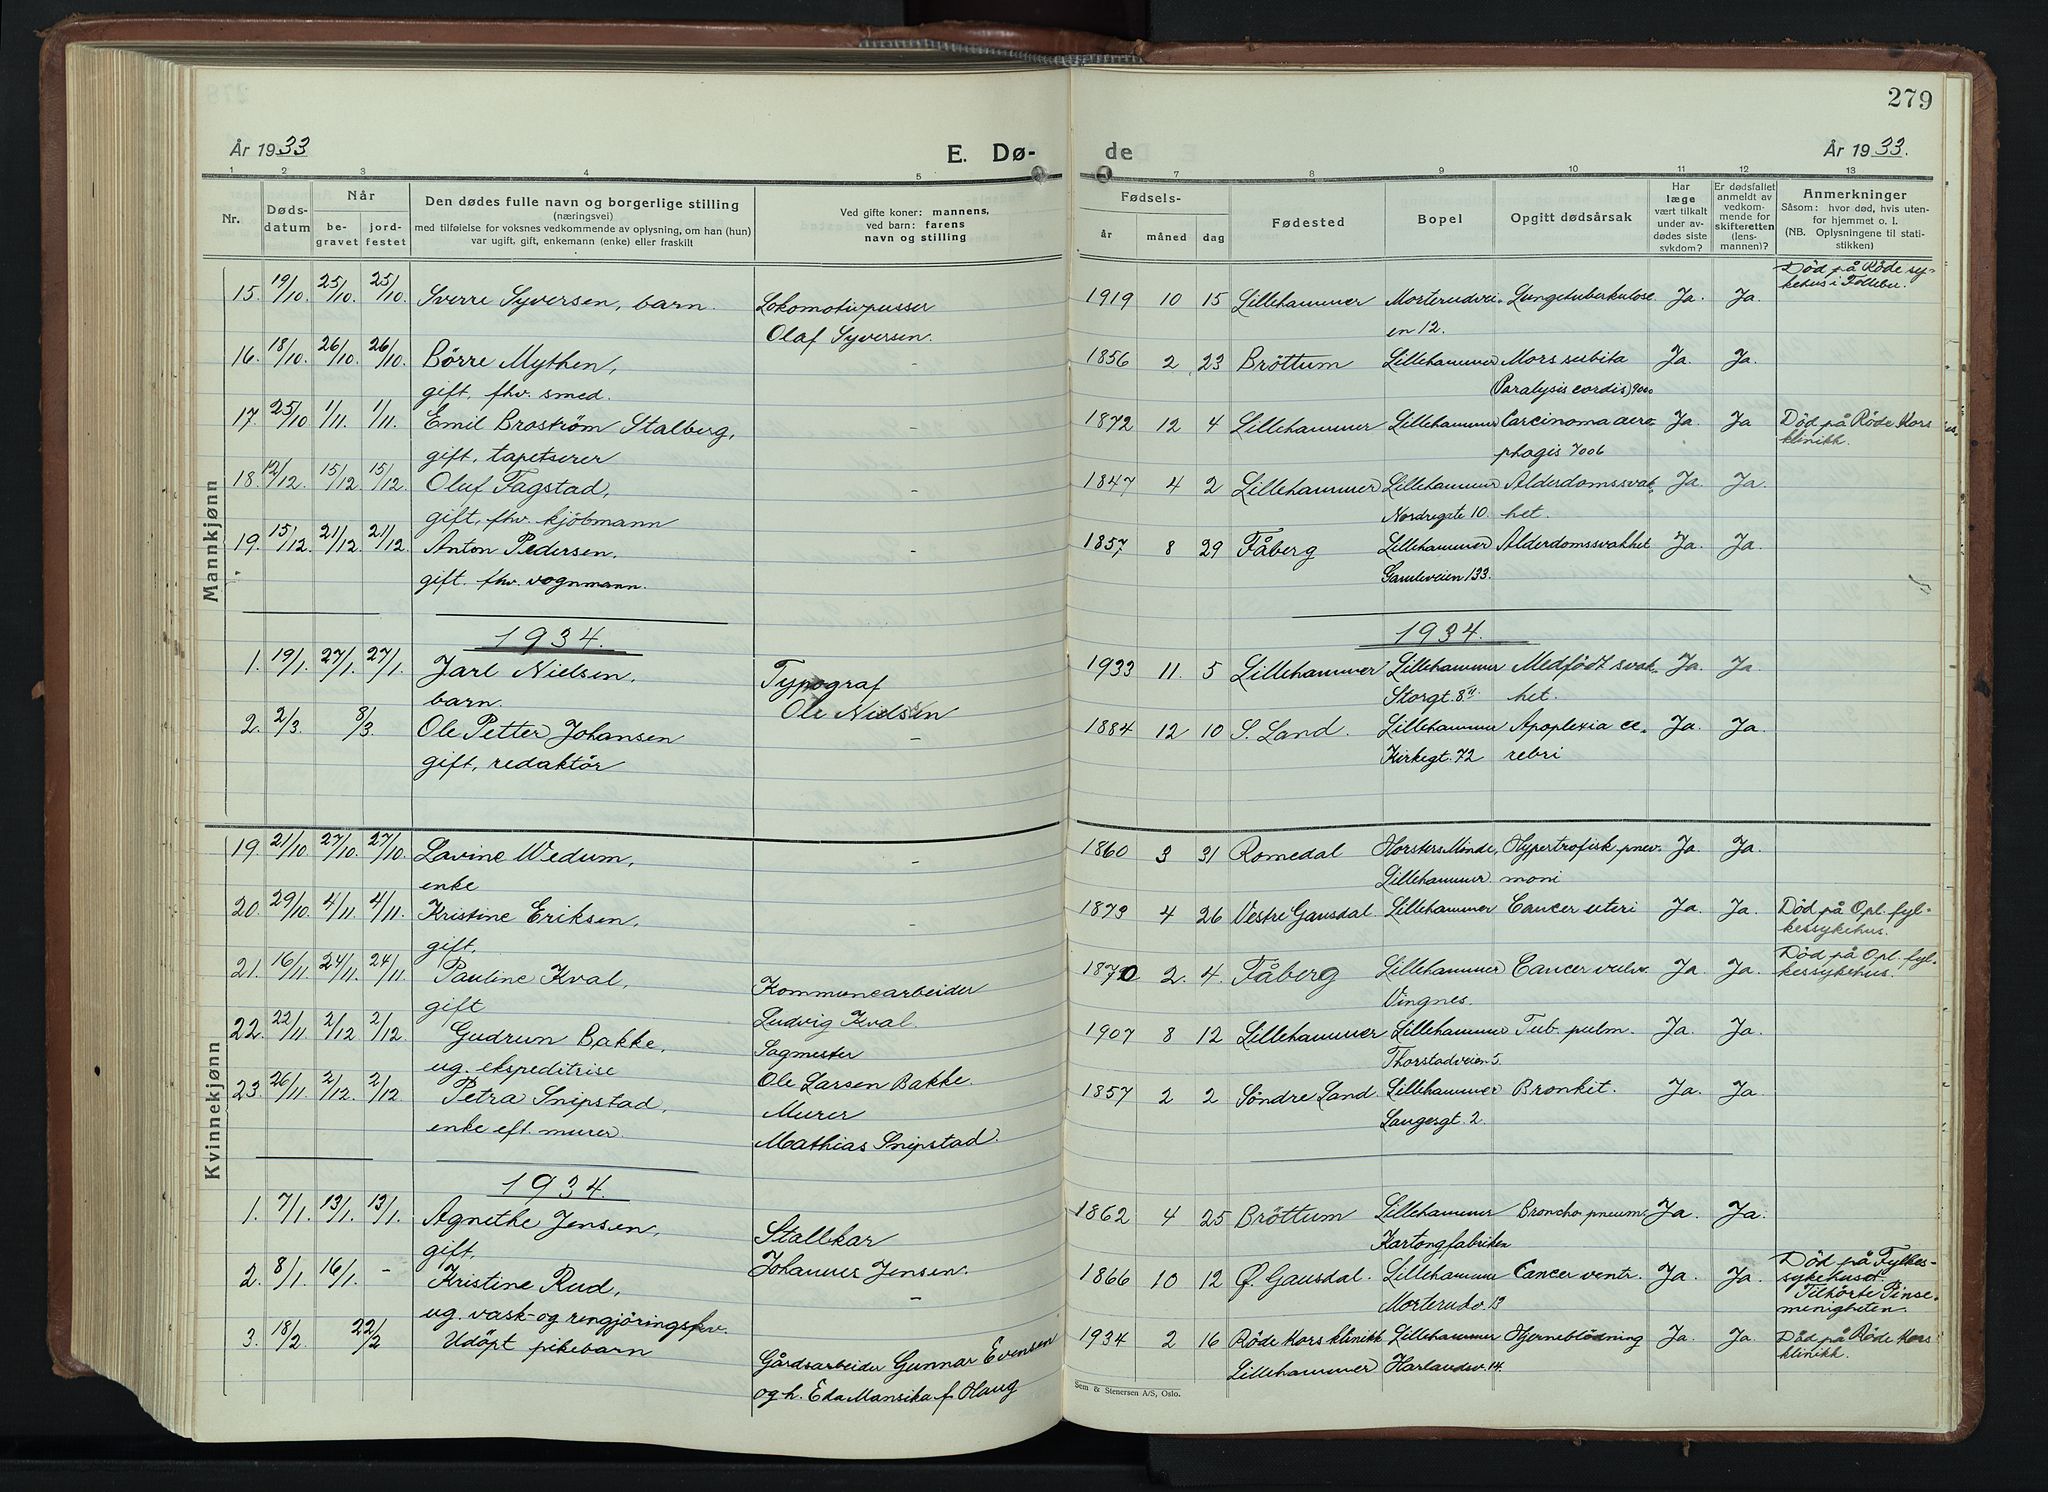 279
År 1933
E. Dø-
de
År 1933.
1 2 3 4 5 7 8 9 10 11 12 13
Nr.
Døds-
datum
Når
be-
gravet
jord-
festet
Den dødes fulle navn og borgerlige stilling
(næringsvei)
med tilføielse for voksnes vedkommende av oplysning, om han (hun)
var ugift, gift, enkemann (enke) eller fraskilt
Ved gifte koner: mannens,
ved barn: farens
navn og stilling
Fødsels-
år måned dag
Fødested
Bopel
Opgitt dødsårsak
Har
læge
vært tilkalt
under av-
dødes siste
svkdom?
Er dødsfallet
anmeldt av
vedkom-
mende for
skifteretten
(lens-
mannen)?
Anmerkninger
Såsom: hvor død, hvis uten-
for hjemmet o. l.
(NB. Oplysningene til stati-
stikken)
Mannkjønn
15. 19/10. 25/10. 25/10. Sverre Syversen, barn. Lokomotivpusser 1919 10 15 Lillehammer Morterudvei- Lungetuberkulose. Ja. Ja. Død på Røde sy-
kehus i Follebu.
Olaf Syversen. en 12.
16. 18/10. 26/10. 26/10. Börre Mythen, - 1856 2 23 Bröttum Lillehammer Mors subita Ja. Ja.
gift, fhv. smed. Paralysis cordis) 9000
17. 25/10 1/11. 1/11. Emil Broström Stalberg, - 1872 12 4 Lillehammer Lillehammer Carcinoma aero- Ja. Ja Död på Röde Kors
klinikk.
gift, tapetserer phagis 7006
18. 12/12. 15/12. 15/12. Oluf Fagstad, - 1847 4 2 Lillehammer Lillehammer Alderdomssvak- Ja. Ja.
gift, fhv. kjöbmann Nordregate 10. het.
19. 15/12. 21/12. 21/12. Anton Pedersen. - 1857. 8 29 Fåberg Lillehammer Alderdomssvakhet Ja. Ja.
gift. fhv. vognmann. Gamleveien 133.
1934. 1934.
1. 19/1. 27/1. 27/1. Jarl Nielsen, Typograf 1933 11. 5 Lillehammer Lillehammer Medfödt svak- Ja. Ja.
barn. Ole Nielsen Storgt. 8 II het.
2. 2/3. 8/3. Ole Petter Johansen - 1884 12 10 S. Land. Lillehammer Apoplexia ce- Ja. Ja.
gift, redaktör Kirkegt. 72 rebri
Kvinnekjønn
19. 21/10 27/10. 27/10. Lavine Wedum, - 1860 3 31 Romedal Horsters Minde, Hypertrofisk pnev- Ja. Ja.
enke Lillehammer. moni
20. 29/10. 4/11. 4/11. Kristine Eriksen, - 1873 4 26 Vestre Gausdal Lillehammer Cancer uteri Ja. Ja. Död på Opl. fyl-
kessykehus.
gift,
21. 16/11 24/11. 24/11. Pauline Kval, Kommunearbeider 1870 2. 4. Fåberg Lillehammer Cancer vulv. Ja Ja. Död på Opl. fyl-
kessykehus.
gift Ludvig Kval. Vingnes.
22. 22/11. 2/12 2/12. Gudrun Bakke, Sagmester 1907 8 12 Lillehammer Lillehammer Tub. pulm. Ja. Ja.
ug. ekspeditrise Ole Larsen Bakke. Thorstadveien 5.
23. 26/11. 2/12. 2/12 Petra Snipstad, Murer 1857 2 2 Söndre Land. Lillehammer Bronkit. Ja. Ja.
enke eft. murer. Mathias Snipstad. Langesgt. 2.
1934.
1. 7/1. 13/1. 13/1. Agnethe Jensen, Stallkar 1862 4 25 Bröttum Lillehammer Broncho pneum. Ja. Ja.
gift, Johannes Jensen. Kartongfabriken
2. 8/1. 16/1. - Kristine Rud, - 1866 10 12 Ø. Gausdal. Lillehammer Cancer ventr. Ja. Ja. Död på Fylkes-
sykehuset.
Tilhörte Pinse-
menigheten.
ug. vask- og rengjöringsfrv. Morterudv. 13
3. 18/2. 22/2 Udöpt pikebarn Gårdsarbeider Gunnar Evensen 1934 2 16 Röde Kors klinikk Lillehammer Hjerneblödning Ja. Ja. Död på Röde Kors
klinikk.
og h. Eda Mansika f. Haug Lillehammer Harlandsv. 14.
Sem & Stenersen A/S, Oslo.